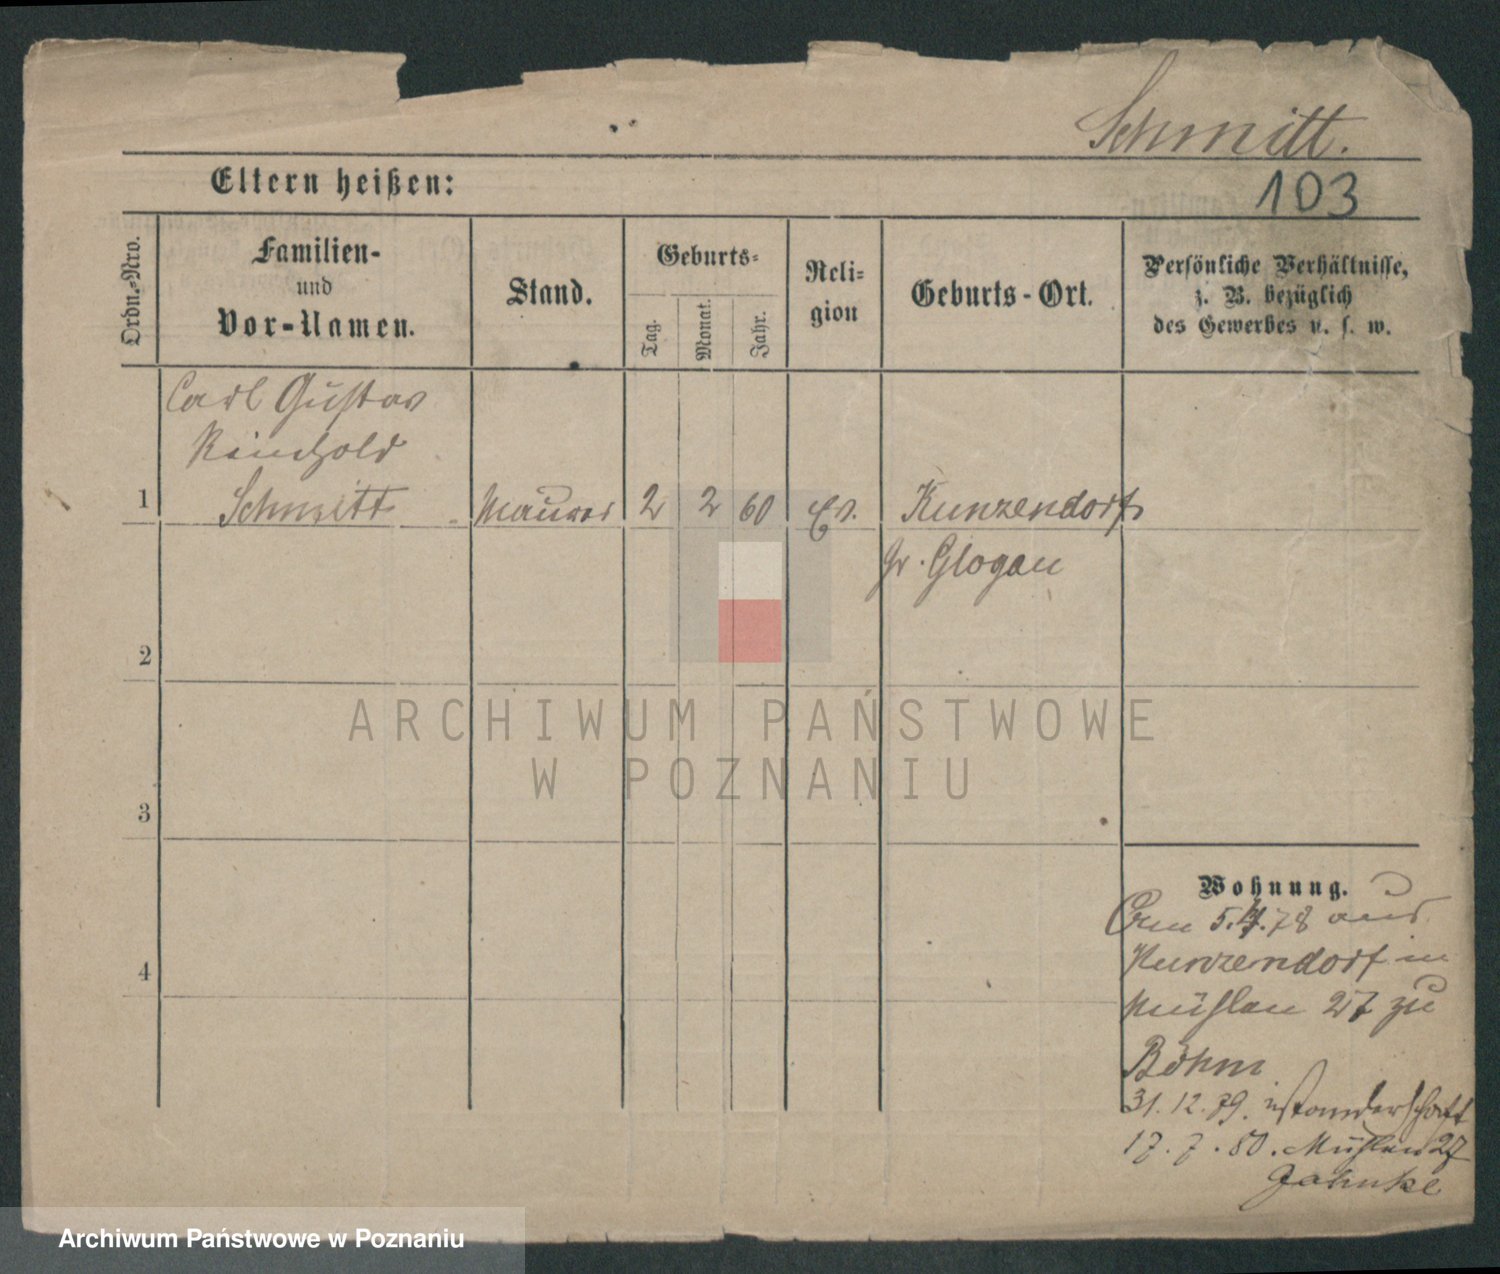 Schmitt.
103
Eltern heißen:
Ordn.-Nro.
Familien-
und
Vor-Namen.
Stand.
Geburts-
Tag.
Monat.
Jahr.
Reli-
gion
Geburts-Ort.
Persönliche Verhältnisse,
z. B. bezüglich
des Gewerbes u. s. w.
Carl Gustav
Reinhold
1 Schmitt Maurer 2 2 60 Ev. Kunzendorf
Gr. Glogau
2
3
4
Wohnung.
5.4.78 aus
Kunzendorf in
Mühlen 27 zu
Böhm
31.12.79. Wanderschaft
17.7.80. Mühlen 27
Jahnke
ARCHIWUM PAŃSTWOWE
W POZNANIU
Archiwum Państwowe w Poznaniu